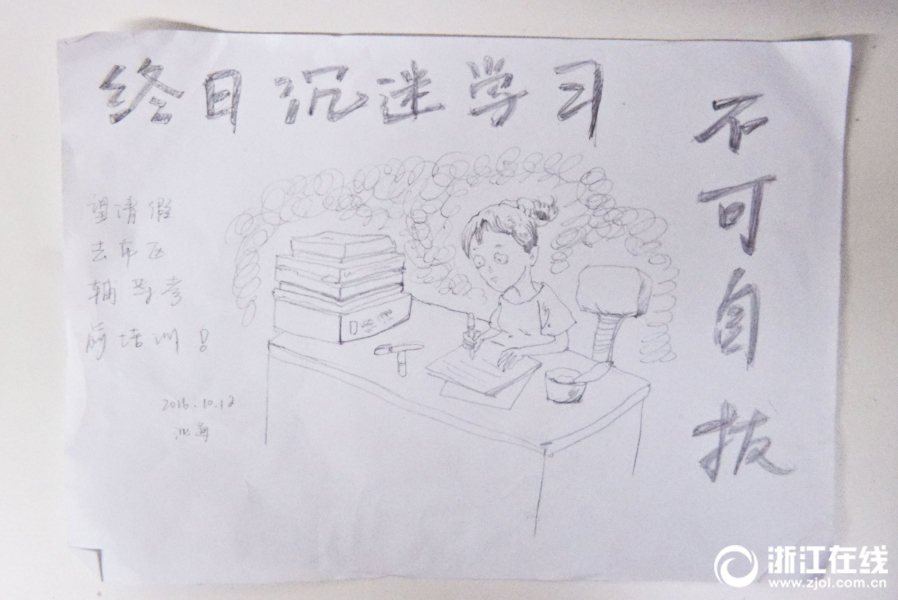 终日沉迷学习
不可自拔
望请假
去市区
辅导考
前培训!
2016.10.12
浙江在线
www.zjol.com.cn